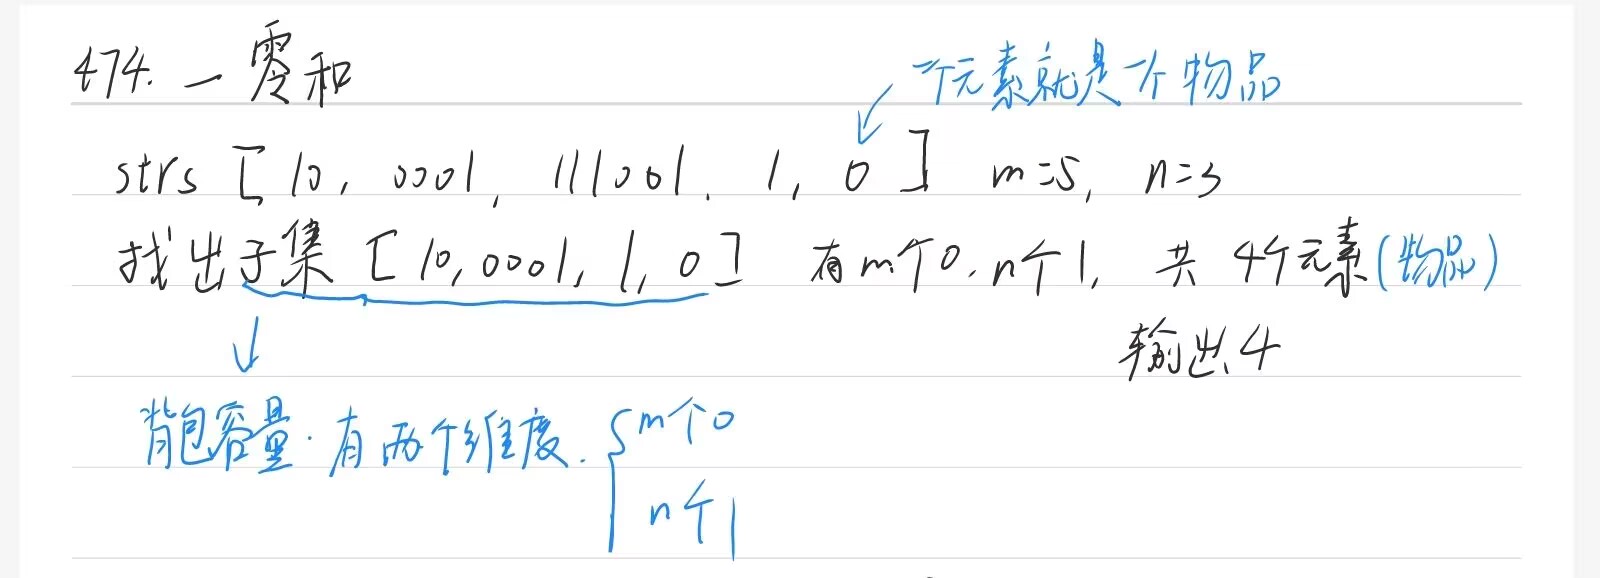 474. 一零和
一个元素就是一个物品
strs [ 10, 0001, 111001, 1, 0 ] m=5, n=3
找出子集 [ 10, 0001, 1, 0 ] 有m个0, n个1, 共 4个元素(物品)
输出4
背包容量. 有两个维度. { m个0
n个1